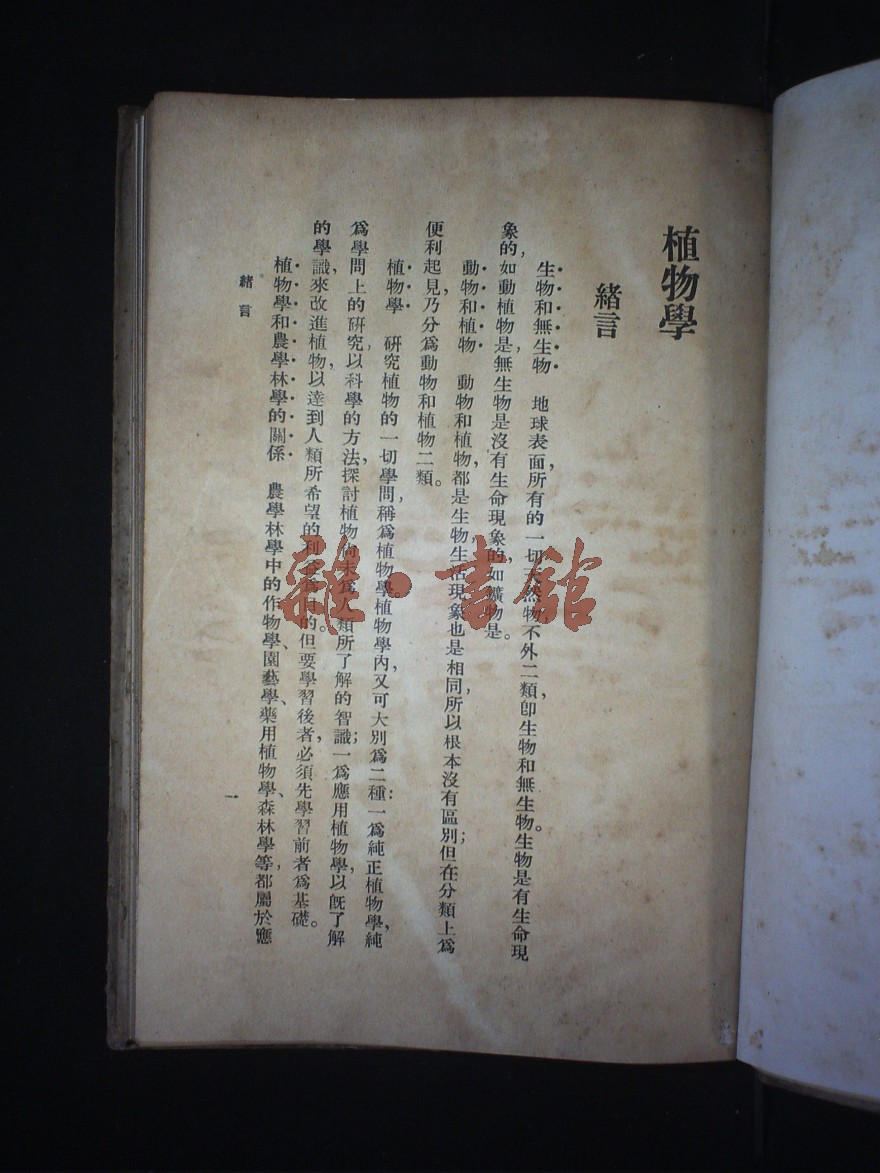 植物學
緒言
生物和無生物　地球表面，所有的一切天然物不外二類，卽生物和無生物。生物是有生命現
象的，如動植物是，無生物是沒有生命現象的，如礦物是。
動物和植物　動物和植物，都是生物，生活現象也是相同，所以根本沒有區別；但在分類上爲
便利起見，乃分爲動物和植物二類。
植物學　研究植物的一切學問，稱爲植物學。植物學內，又可大別爲二種：一爲純正植物學，純
爲學問上的研究，以科學的方法，探討植物尙未爲人類所了解的智識；一爲應用植物學，以旣了解
的學識，來改進植物，以達到人類所希望的利益爲目的。但要學習後者，必須先學習前者爲基礎。
植物學和農學林學的關係　農學林學中的作物學、園藝學、藥用植物學、森林學等，都屬於應
緒言
一
雜·書館